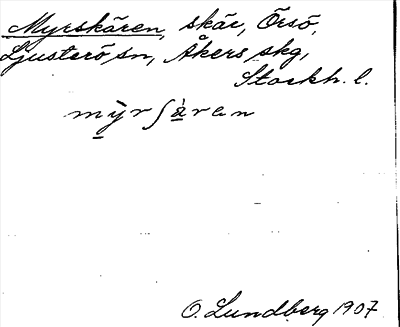 Myrskären, skär, Örsö,
Ljusterö sn, Åkers skg,
Stockh. l.
my̆rʃä̀ran
O. Lundberg 1907